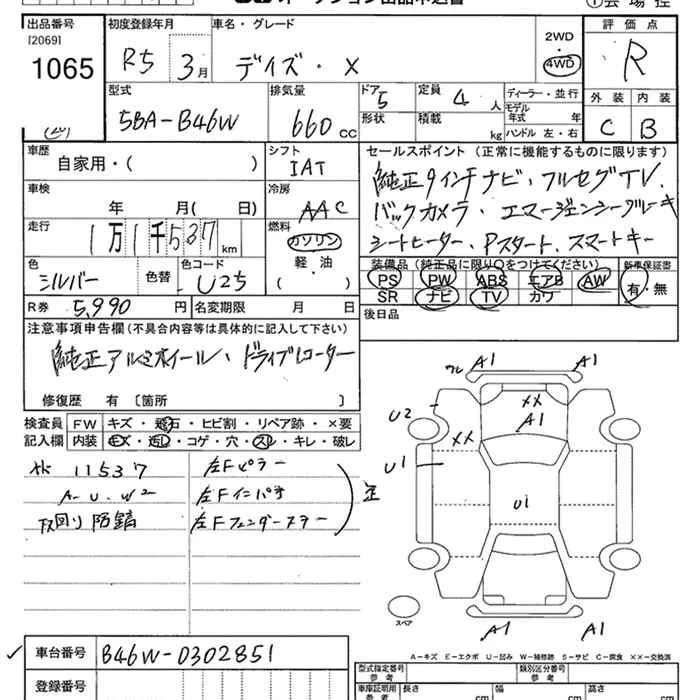 出品番号 初度登録年月 車名・グレード 評価点
[2069]
1065
R5 3月 デイズ・X 2WD 4WD R
型式 排気量 ドア 定員 ディーラー・並行 外装 内装
5BA-B46W 660cc 5 4人
モデル年式 年
形状 積載 kg ハンドル 左・右 C B
車歴 シフト セールスポイント(正常に機能するものに限ります)
自家用・( ) IAT
純正9インチナビ・フルセグTV.
車検 冷房
年 月(日) AAC
バックカメラ・エマージェンシーブレーキ
走行 燃料
1万1千537km ガソリン
シートヒーター、Pスタート、スマートキー
軽・油
( )
色 色替 色コード
シルバー U25
装備品(純正品に限り○をつけてください) 新車保証書
PS PW ABS エアB AW 有・無
SR ナビ TV カワ
R券 5,990円 名変期限 月 日
後日品
注意事項申告欄(不具合内容等は具体的に記入して下さい)
純正アルミホイール、ドライブレコーダー
修復歴 有〔箇所 〕
検査員 FW キズ・飛石・ヒビ割・リペア跡・×要
記入欄 内装 キズ・汚レ・コゲ・穴・スレ・キレ・破レ
11537 左Fピラー
A-U.W2 左Fインパネ
下回り防錆 左Fフェンダーステー
正
A1 A1
XX
A1
U2
XX
U1
U1
スペア
A1 A1
A-キズ E-エクボ U-凹み W-補修跡 S-サビ C-腐食 XX-交換済
車台番号 B46W-0302851
登録番号
型式指定番号 参考 類別区分番号 参考
車庫証明用 参考 長さ cm 幅 cm 高さ cm